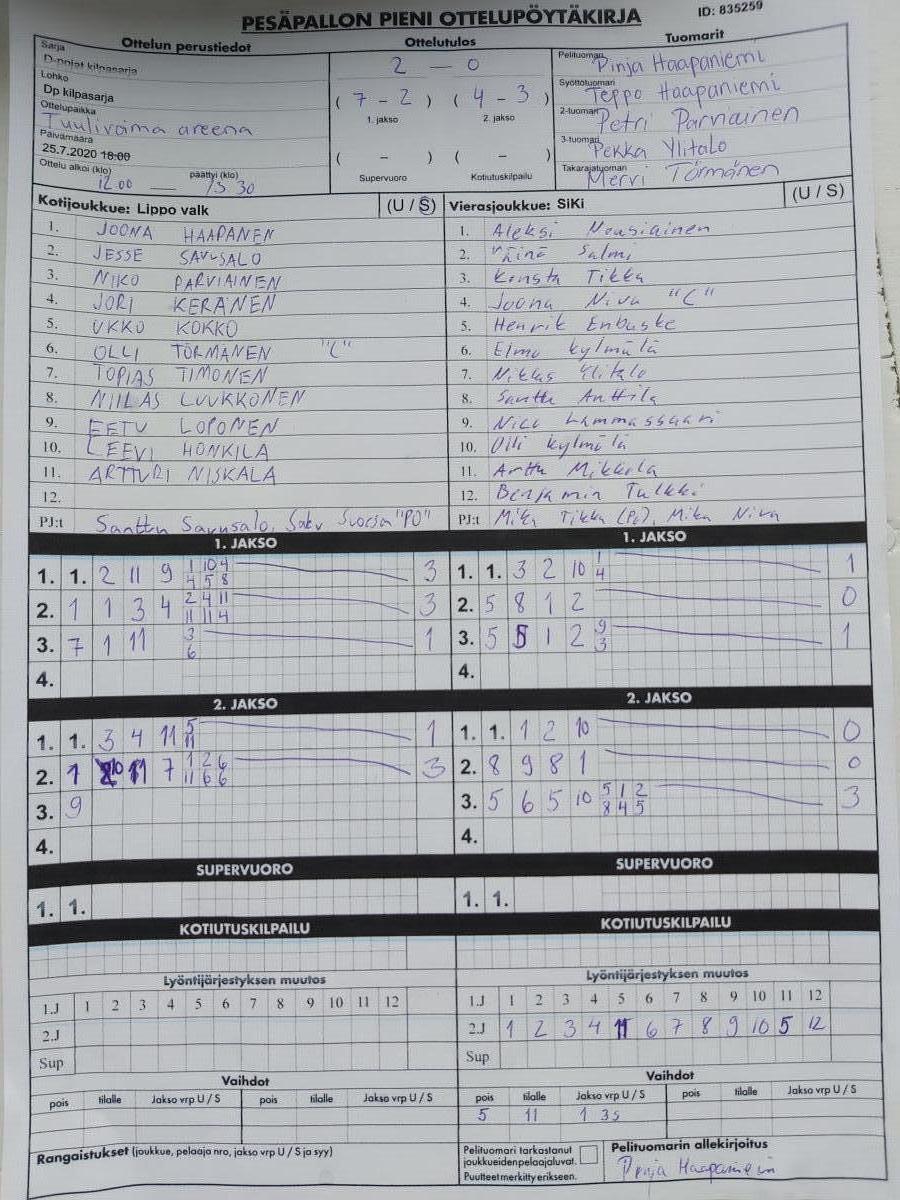 PESÄPALLON PIENI OTTELUPÖYTÄKIRJA
ID: 835259
Ottelun perustiedot
Sarja
D-pojat kilpasarja
Lohko
Dp kilpasarja
Ottelupaikka
Tuulivoima areena
Päivämäärä
25.7.2020 18:00
Ottelu alkoi (klo) päättyi (klo)
12.00 — 13 30
Ottelutulos
2 — 0
( 7 - 2 ) ( 4 - 3 )
1. jakso 2. jakso
( - ) ( - )
Supervuoro Kotiutuskilpailu
Tuomarit
Pelituomari Pinja Haapaniemi
Syöttötuomari Teppo Haapaniemi
2-tuomari Petri Parviainen
3-tuomari Pekka Ylitalo
Takarajatuomari Mervi Törmänen
Kotijoukkue: Lippo valk (U / S)
1. JOONA HAAPANEN
2. JESSE SAVUSALO
3. NIKO PARVIAINEN
4. JORI KERÄNEN
5. UKKO KOKKO
6. OLLI TÖRMÄNEN "C"
7. TOPIAS TIMONEN
8. NIILAS LUUKKONEN
9. EETU LOPONEN
10. LEEVI HONKILA
11. ARTTURI NISKALA
12.
PJ:t Santtu Savusalo, Saku Suorsa "PO"
Vierasjoukkue: SiKi (U / S)
1. Aleksi Nousiainen
2. Väinö Salmi
3. Konsta Tikka
4. Joona Niva "C"
5. Henrik Enbuske
6. Elmo Kylmälä
7. Niklas Ylitalo
8. Santtu Anttila
9. Nico Lammassaari
10. Olli Kylmälä
11. Arttu Mikkola
12. Benjamin Tulkki
PJ:t Mika Tikka (Po), Mika Niva
1. JAKSO
1. 1. 2 11 9 1 10 4 3
4 5 8
2. 1 1 3 4 2 4 11 3
11 11 4
3. 7 1 11 3 1
6
4.
1. JAKSO
1. 1. 3 2 10 1 1
4
2. 5 8 1 2 0
3. 5 5 1 2 9 1
3
4.
2. JAKSO
1. 1. 3 4 11 5 1
11
2. 1 10 11 7 1 2 6 3
11 6 6
3. 9
4.
2. JAKSO
1. 1. 1 2 10 0
2. 8 9 8 1 0
3. 5 6 5 10 5 1 2 3
8 4 5
4.
SUPERVUORO
1. 1.
SUPERVUORO
1. 1.
KOTIUTUSKILPAILU
KOTIUTUSKILPAILU
Lyöntijärjestyksen muutos
1.J 1 2 3 4 5 6 7 8 9 10 11 12
2.J
Sup
Lyöntijärjestyksen muutos
1.J 1 2 3 4 5 6 7 8 9 10 11 12
2.J 1 2 3 4 11 6 7 8 9 10 5 12
Sup
Vaihdot
pois tilalle Jakso vrp U / S pois tilalle Jakso vrp U / S
Vaihdot
pois tilalle Jakso vrp U / S pois tilalle Jakso vrp U / S
5 11 1 3s
Rangaistukset (joukkue, pelaaja nro, jakso vrp U / S ja syy)
Pelituomari tarkastanut
joukkueidenpelaajaluvat.
Puutteet merkitty erikseen.
Pelituomarin allekirjoitus
Pinja Haapaniemi